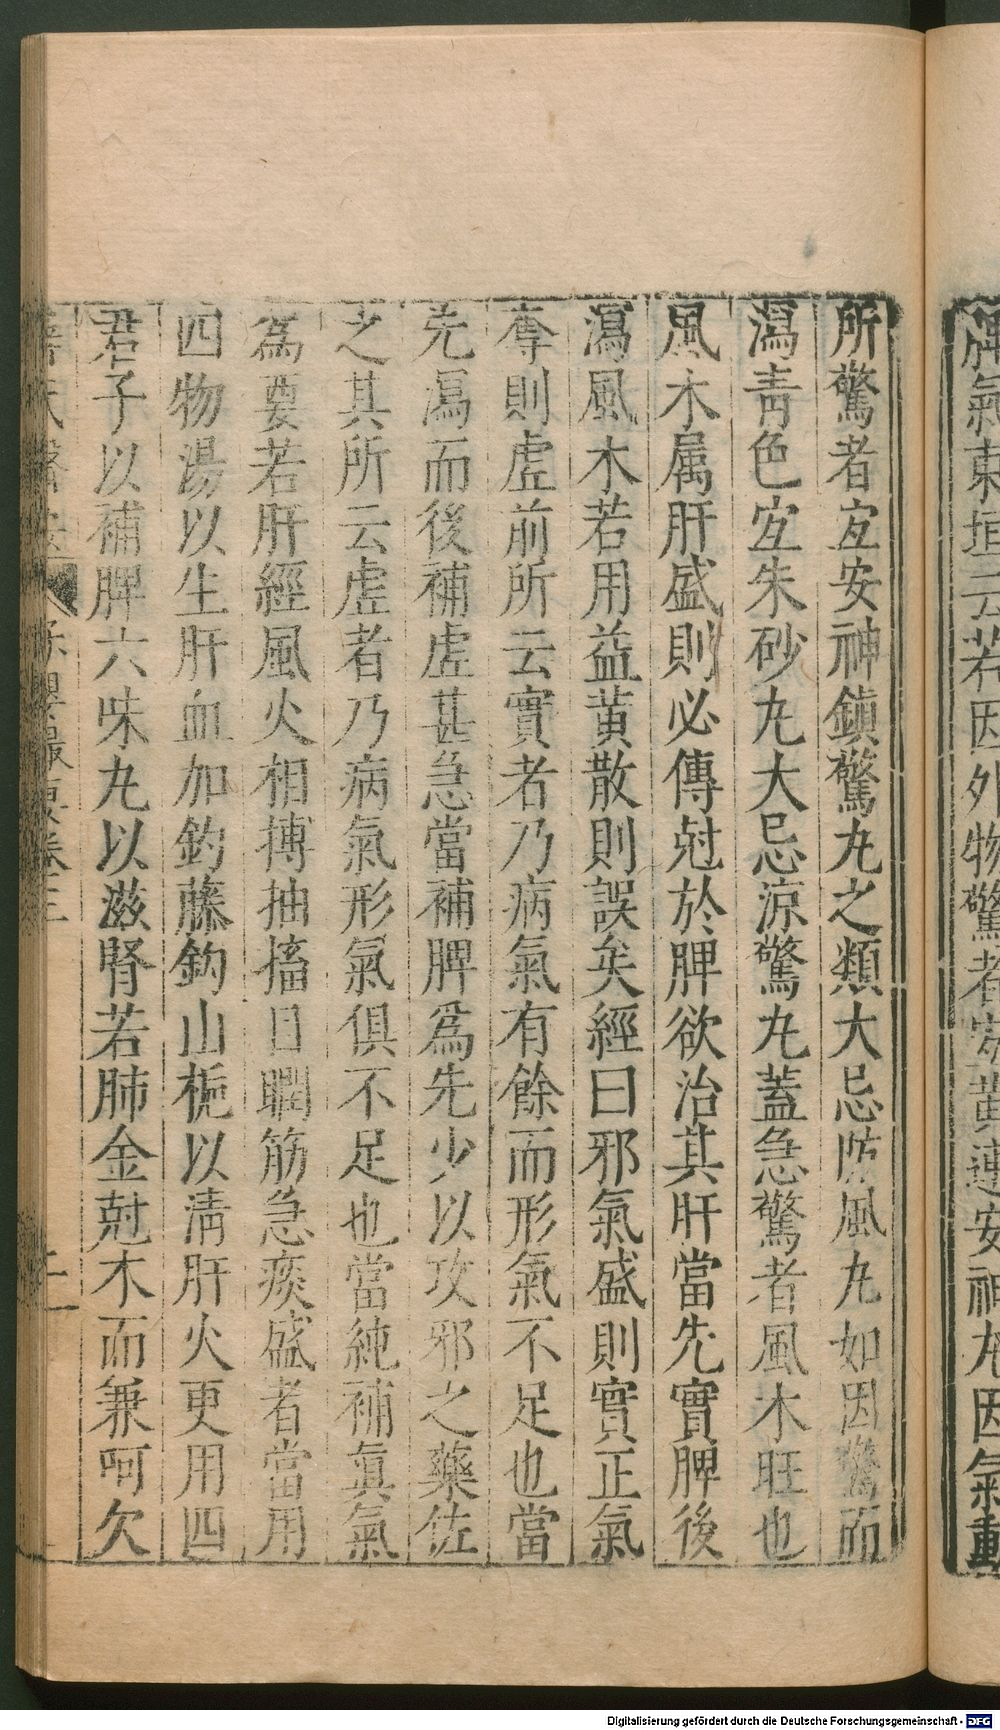 脾氣東垣云若因外物驚者宐黄連安神丸因氣動
所驚者宐安神鎮驚丸之類大忌防風丸如因驚而
瀉青色宐朱砂丸大忌凉驚丸蓋急驚者風木旺也
風木属肝盛則必傳尅於脾欲治其肝當先實脾後
瀉風木若用益黄散則誤矣經曰邪氣盛則實正氣
奪則虛前所云實者乃病氣有餘而形氣不足也當
先瀉而後補虛甚急當補脾爲先少以攻邪之藥佐
之其所云虛者乃病氣形氣俱不足也當純補眞氣
爲要若肝經風火相搏抽搐目瞤筋急痰盛者當用
四物湯以生肝血加釣藤鈎山梔以淸肝火更用四
君子以補脾六味丸以滋腎若肺金尅木而兼呵欠
薛氏醫案 保嬰撮要卷三 十一
Digitalisierung gefördert durch die Deutsche Forschungsgemeinschaft - DFG